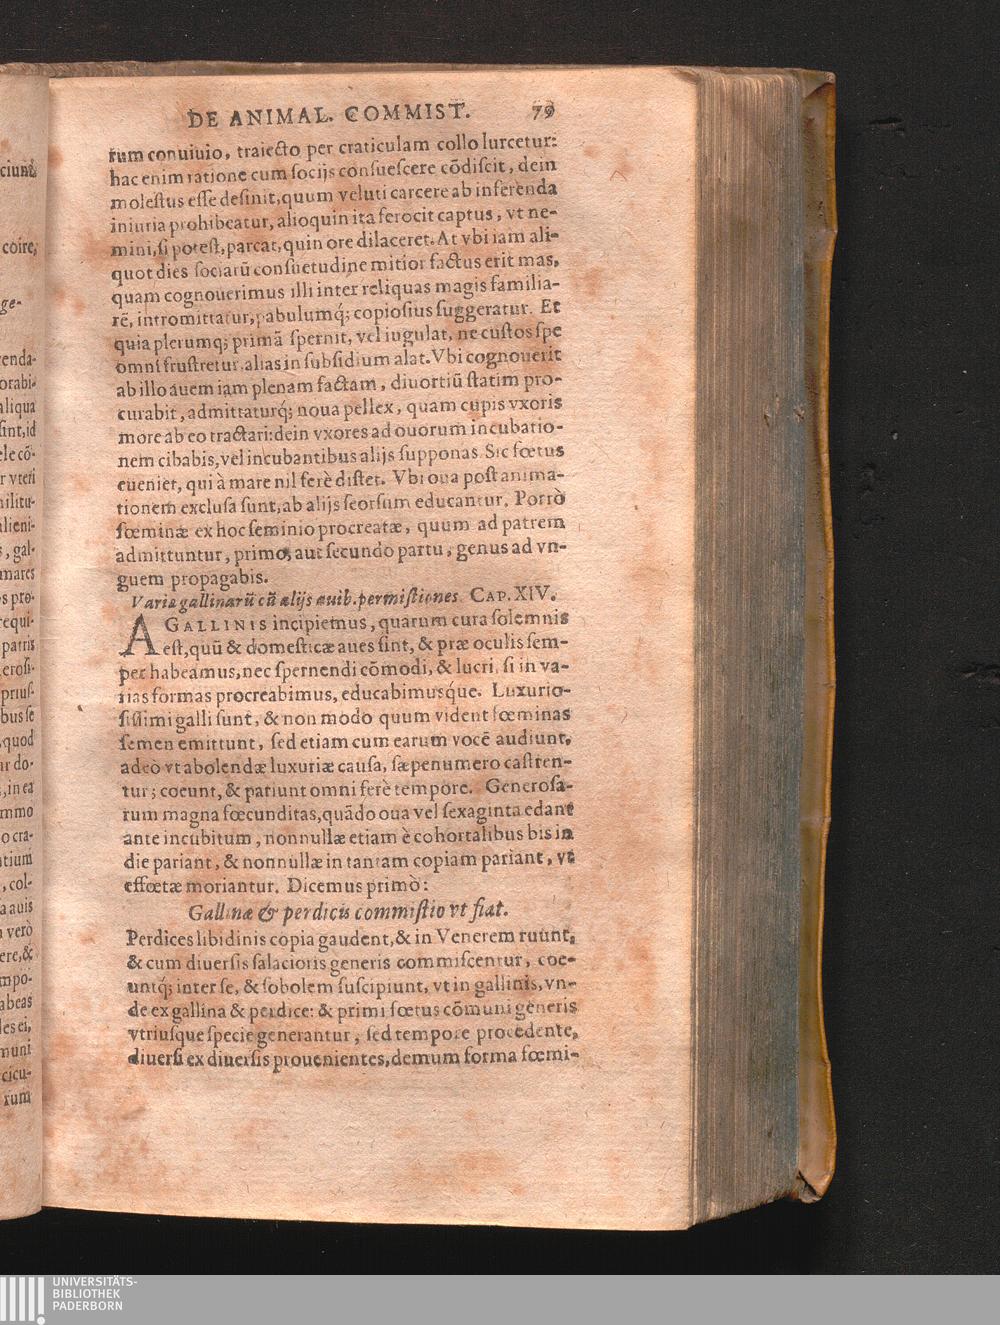 DE ANIMAL. COMMIST. 79
rum conuiuio, traiecto per craticulam collo lurcetur:
hac enim ratione cum socijs consuescere cōdiscit, dein
molestus esse desinit, quum veluti carcere ab inferenda
iniuria prohibeatur, alioquin ita ferocit captus, vt ne-
mini, si potest, parcat, quin ore dilaceret. At vbi iam ali-
quot dies sociarū consuetudine mitior factus erit mas,
quam cognouerimus illi inter reliquas magis familia-
rē, intromittatur, pabulumq́; copiosius suggeratur. Et
quia plerumq; primā spernit, vel iugulat, ne custos spe
omni frustretur, alias in subsidium alat. Vbi cognouerit
ab illo auem iam plenam factam, diuortiū statim pro-
curabit, admittaturq́; noua pellex, quam cupis vxoris
more ab eo tractari: dein vxores ad ouorum incubatio-
nem cibabis, vel incubantibus alijs supponas. Sic fœtus
eueniet, qui à mare nil ferè distet. Vbi oua post anima-
tionem exclusa sunt, ab alijs seorsum educantur. Porrò
fœminæ ex hoc seminio procreatæ, quum ad patrem
admittuntur, primo, aut secundo partu, genus ad vn-
guem propagabis.
Variæ gallinarū cū alijs auib. permistiones. CAP. XIV.
A GALLINIS incipiemus, quarum cura solemnis
est, quū & domesticæ aues sint, & præ oculis sem-
per habeamus, nec spernendi cōmodi, & lucri, si in va-
rias formas procreabimus, educabimusq́ue. Luxurio-
sissimi galli sunt, & non modo quum vident fœminas
semen emittunt, sed etiam cum earum vocē audiunt,
adeò vt abolendæ luxuriæ causa, sæpenumero castren-
tur; coeunt, & pariunt omni ferè tempore. Generosa-
rum magna fœcunditas, quādo oua vel sexaginta edant
ante incubitum, nonnullæ etiam è cohortalibus bis in
die pariant, & nonnullæ in tantam copiam pariant, vt
effœtæ moriantur. Dicemus primò:
Gallinæ & perdicis commistio vt fiat.
Perdices libidinis copia gaudent, & in Venerem ruunt,
& cum diuersis salacioris generis commiscentur, coe-
untq́; inter se, & sobolem suscipiunt, vt in gallinis, vn-
de ex gallina & perdice: & primi fœtus cōmuni generis
vtriusque specie generantur, sed tempore procedente,
diuersi ex diuersis prouenientes, demum forma fœmi-
UNIVERSITÄTS-
BIBLIOTHEK
PADERBORN